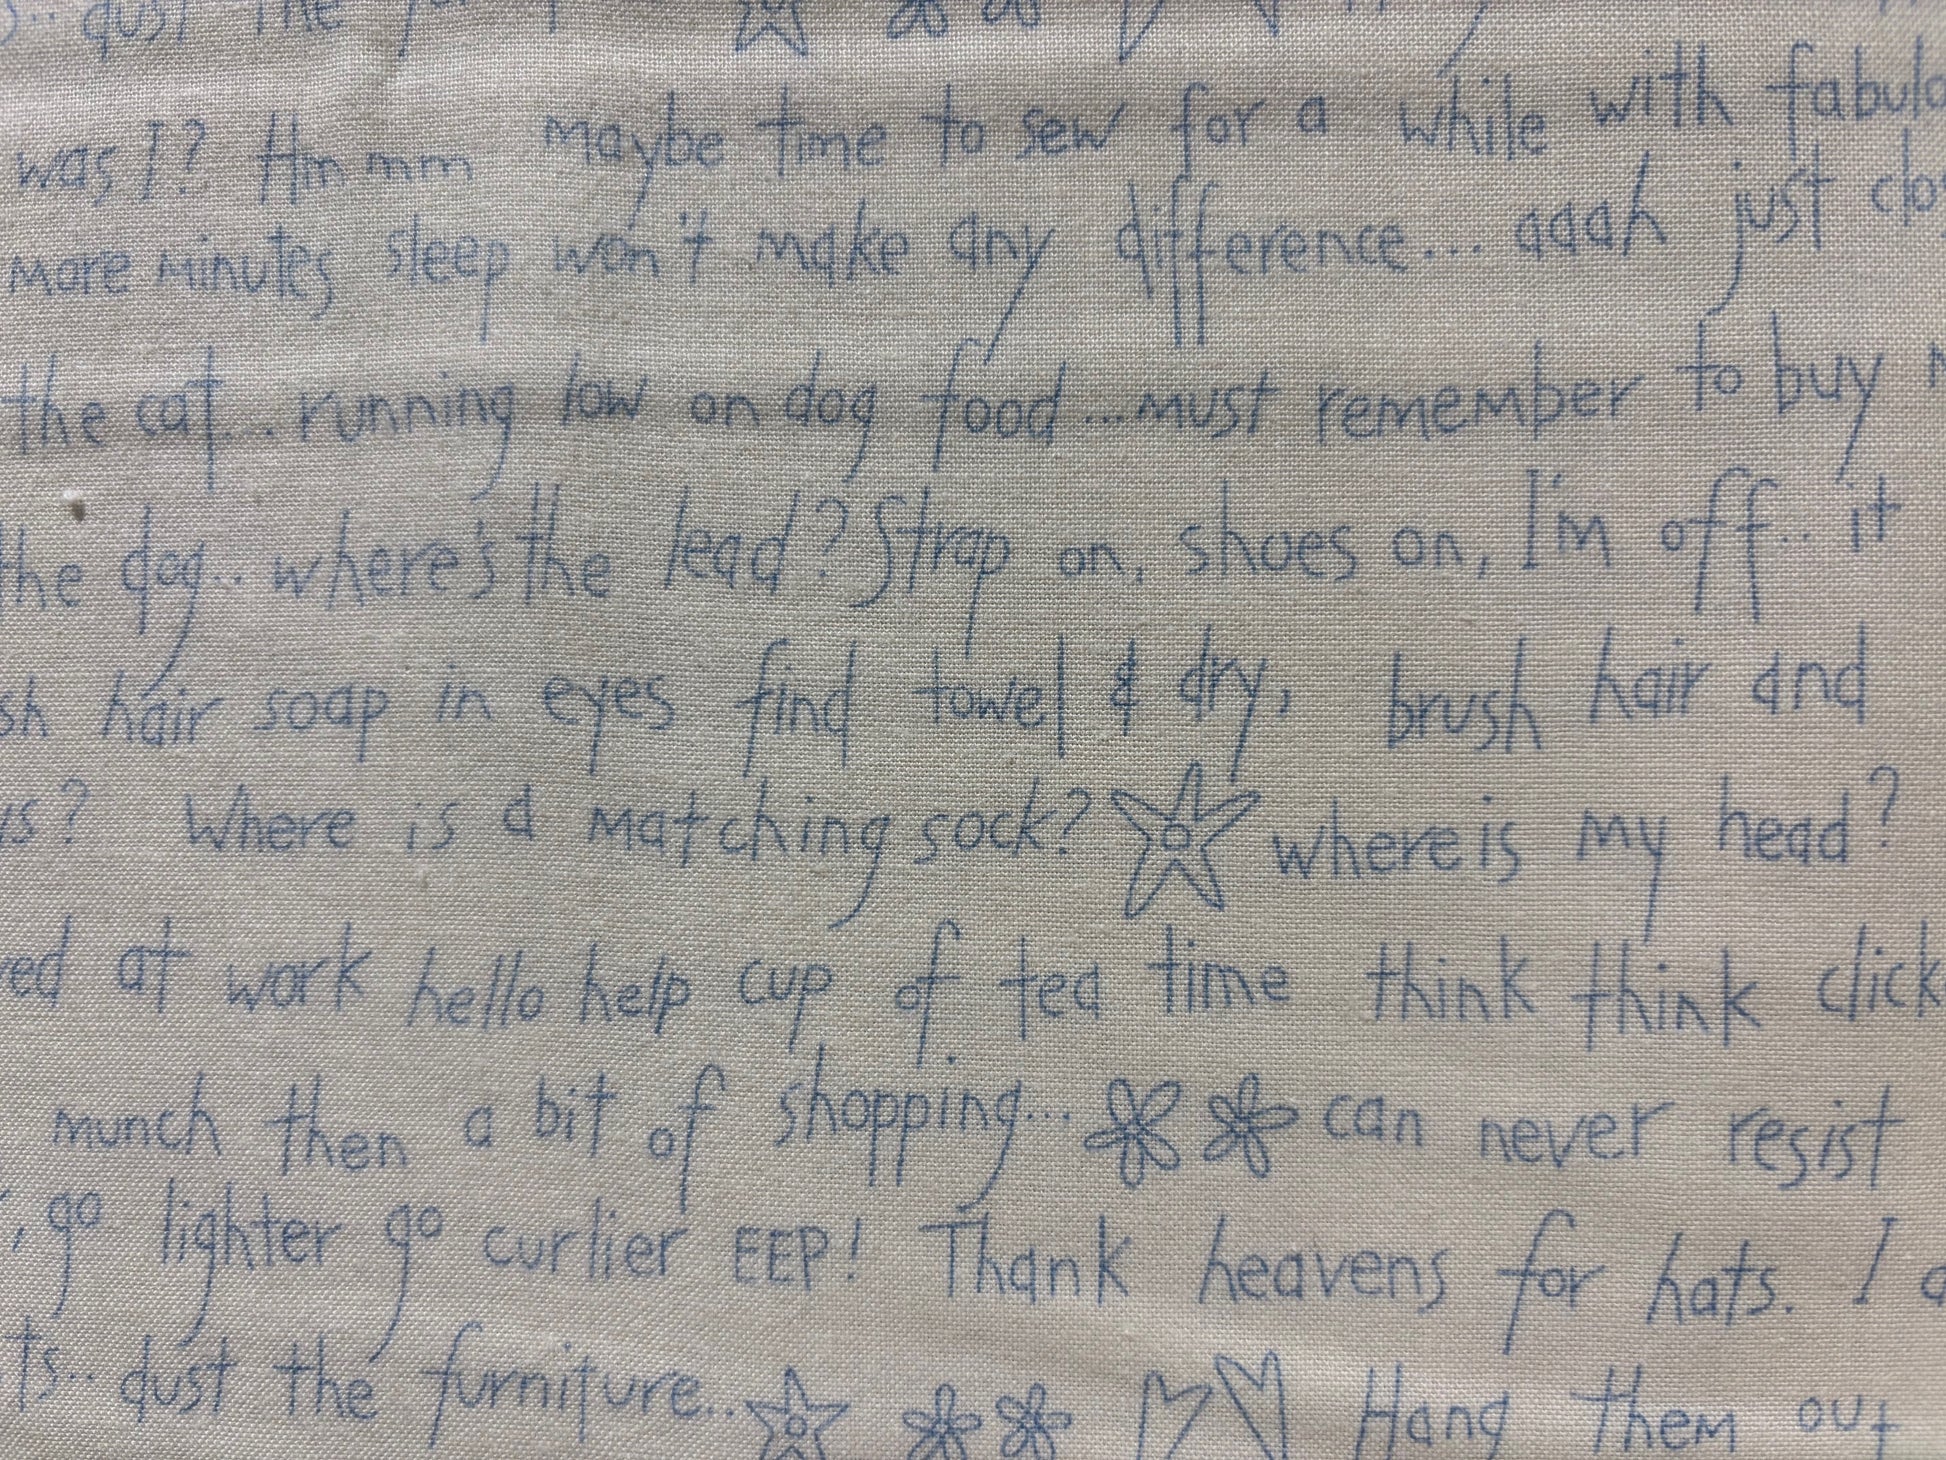 dust the
was I? Hmmmm maybe time to sew for a while with fabulo
more minutes sleep won't make any difference... aaah just clos
the cat... running low on dog food...must remember to buy
the dog.. where's the lead? Strap on, shoes on, I'm off.. it
sh hair soap in eyes find towel & dry, brush hair and
us? Where is a matching sock? where is my head?
ved at work hello help cup of tea time think think click
munch then a bit of shopping... can never resist
, go lighter go curlier EEP! Thank heavens for hats. I
ts.. dust the furniture... Hang them out